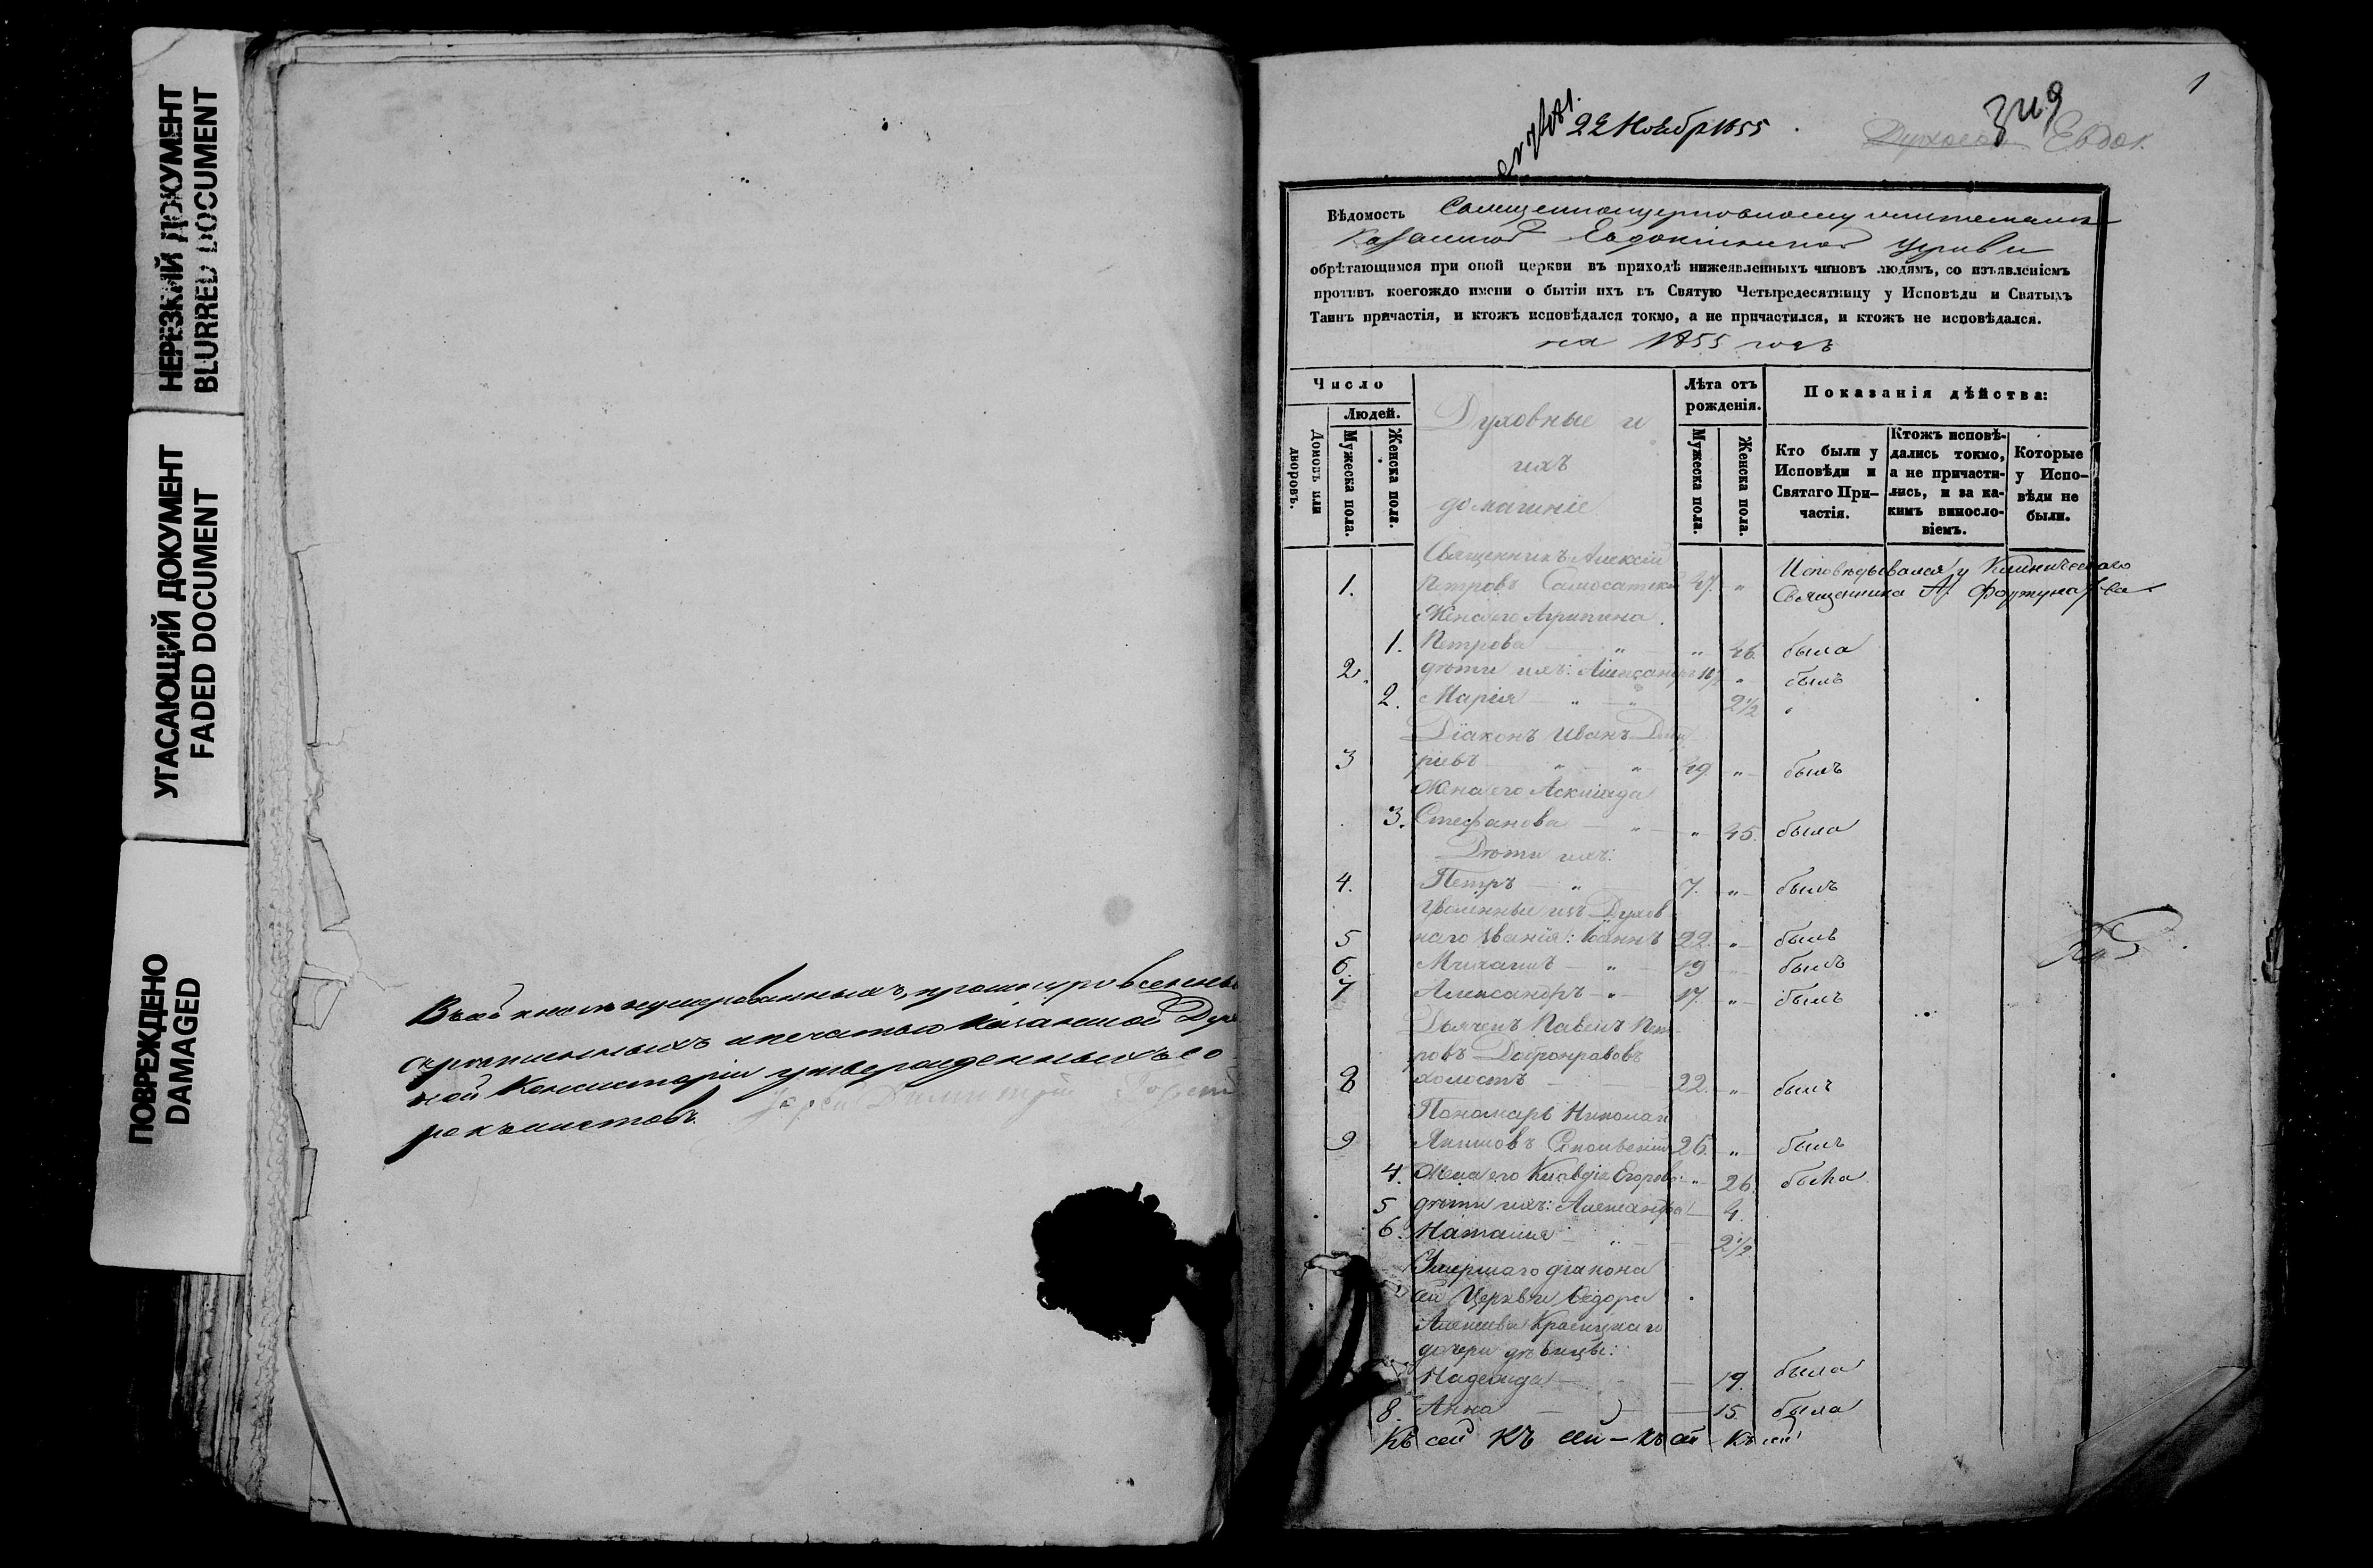 НЕРЕЗКИЙ ДОКУМЕНТ
BLURRED DOCUMENT
УГАСАЮЩИЙ ДОКУМЕНТ
FADED DOCUMENT
ПОВРЕЖДЕНО
DAMAGED
скрѣпленныхъ и печатью Казанской Дух
ной Консисторіи утвержденныхъ со
рокъ листовъ.
1
22 Ноябр 1855
Евдок.
Вѣдомость
Казанской Евдокіинской церкви
обрѣтающимся при оной церкви въ приходѣ нижеявленныхъ чиновъ людямъ, со изъявленіемъ
противъ коегождо имени о бытіи ихъ въ Святую Четыредесятницу у Исповѣди и Святыхъ
Таинъ причастія, и ктожъ исповѣдался токмо, а не причастился, и ктожъ не исповѣдался.
на 1855 годъ
Число
Людей.
Домовъ или дворовъ.
Мужеска пола.
Женска пола.
Духовные и
ихъ
домашніе
Лѣта отъ рожденія.
Мужеска пола.
Женска пола.
Показанія дѣйства:
Кто были у Исповѣди и Святаго При-частія.
Ктожъ исповѣ-дались токмо, а не причасти-лись, и за ка-кимъ винословіемъ.
Которые у Испо-вѣди не были.
Священникъ Алексій
1. Петровъ 47. „ Исповѣдывался у
Священника А.
Жена его Агрипина
1. Петрова „ „ 46. была
2. дѣти ихъ: Александръ „ былъ
2. Марія „ „ 2½ „
Діаконъ Иванъ Дмит
3 ріевъ „ „ 49 „ былъ
Жена его
3. Стефанова „ „ 45. была
Дѣти ихъ:
4. Петръ „ 7. „ былъ
Уволенные изъ Духов
5 наго званія: Іоаннъ 22. „ былъ
6. Михаилъ „ 19 „ былъ
7 Александръ „ 17. „ былъ
Дьячекъ Павелъ Пет
ровъ Добронравовъ
8 холостъ 22. „ былъ
Пономарь Николай
9 26. „ былъ
4. Жена его Клавдія Егорова „ 26. была
5 дѣти ихъ: Александра 4.
6. Наталия „ 2½
Умершаго діакона
сей Церкви Ѳедора
Алексѣева
дочери дѣвицы:
Надежда 19. была
8. Анна 15. была
Къ сей Къ сей – Къ сей – Къ сей